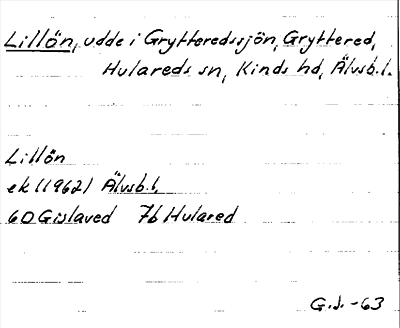 Lillön, udde i Grytteredssjön, Gryttered,
Hulareds sn, Kinds hd, Älvsb.l.
Lillön
ek (1962) Älvsb.l.
6D Gislaved 7b Hulared
G.J.-63